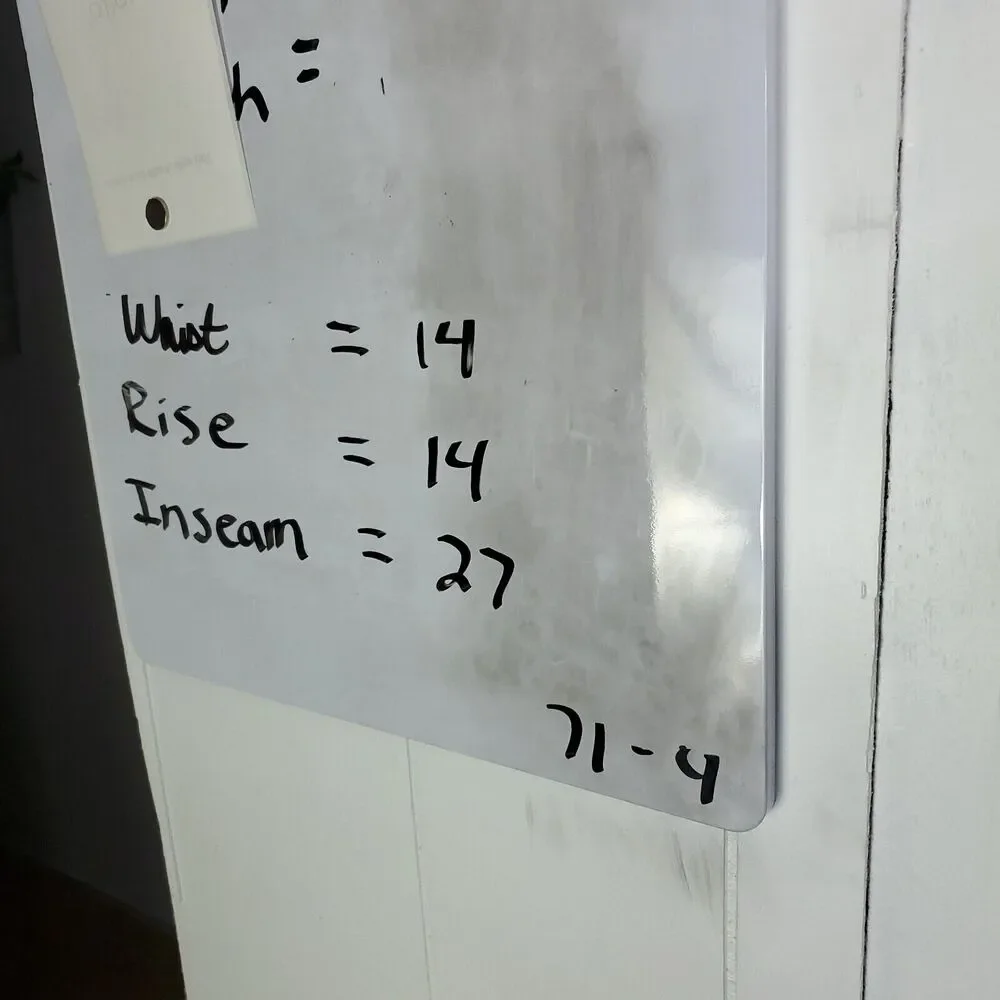 h =
Waist = 14
Rise = 14
Inseam = 27
71-4